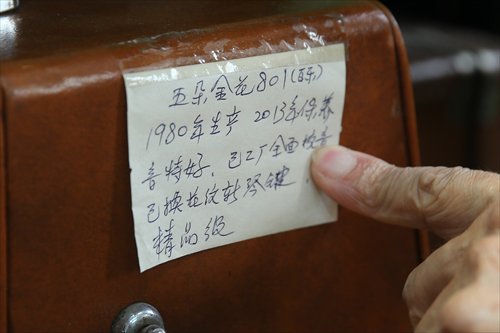 五朵金花801(百乐)
1980年生产 2013年保养
音特好. 已工厂全面校音
已换花纹新琴键
精品级